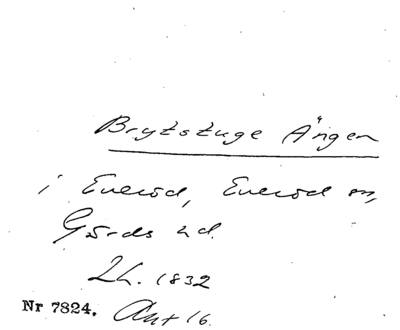 Brytstuge Ängen
i Everöd, Everöd sn,
Gärds hd.
LH. 1832
Nr 7824. Akt 16.